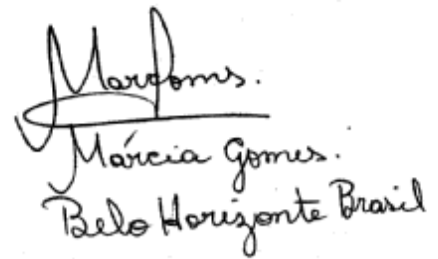 Margoms.
Márcia Gomes.
Belo Horizonte Brasil